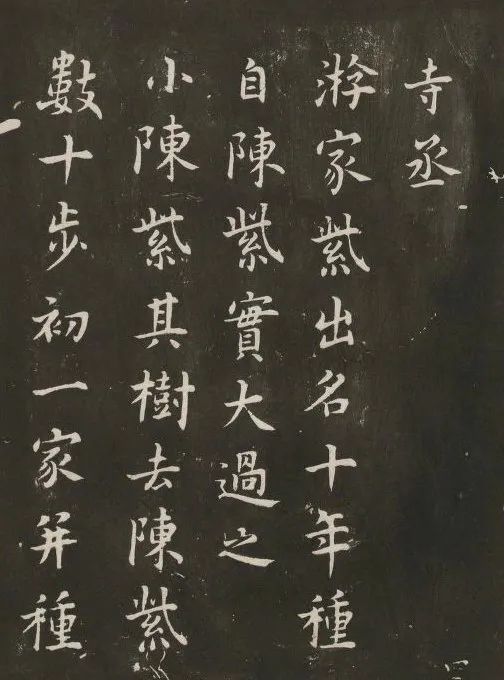 寺丞
游家紫出名十年種
自陳紫實大過之
小陳紫其樹去陳紫
數十步初一家并種